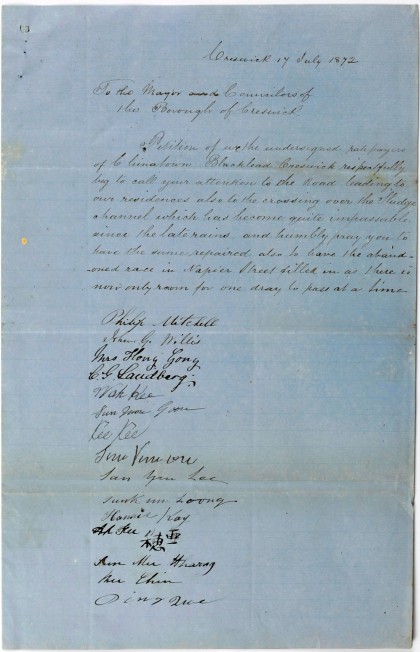 Creswick 17 July 1872
To the Mayor and Councilors of
the Borough of Creswick
Petition of us the undersigned ratepayers
of Chinatown Blacklead Creswick respectfully
beg to call your attention to the Road leading to
our residences also to the crossing over the Sludge
channel which has become quite impassable
since the late rains and humbly pray you to
have the same repaired also to have the aband-
oned race in Napier Street filled in as there is
now only room for one dray to pass at a time
Philip Mitchell
John G. Willis
Mrs Hong Gong
C. G. Landberg
Wah Hee
Sun
Lee Lee
Sun Yee Lee
Loong
Kay
Ah
穗雲
Ping Que